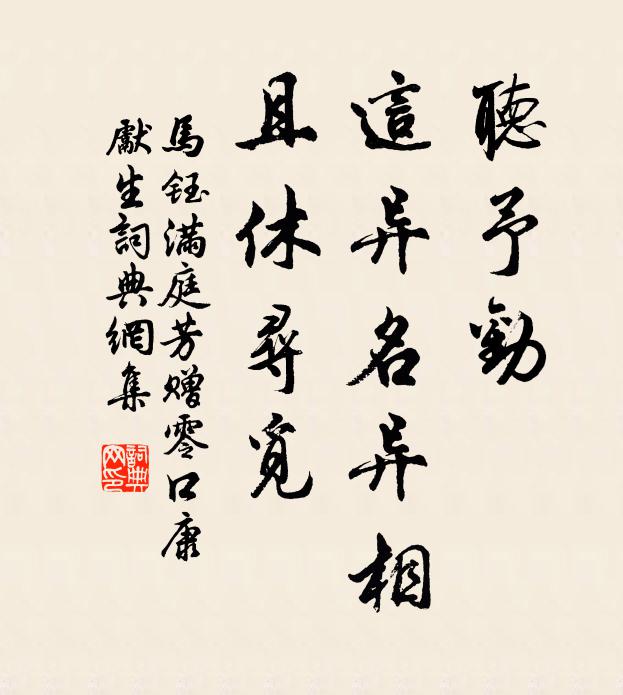 聽予勸
這异名异相
且休尋覓
馬鈺滿庭芳赠零口康
獻生詞典網集
詞典网印